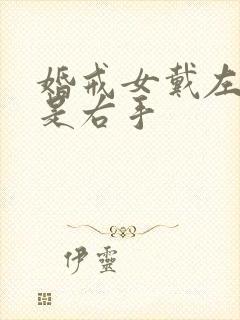 婚戒女戴左
是右手
伊靈